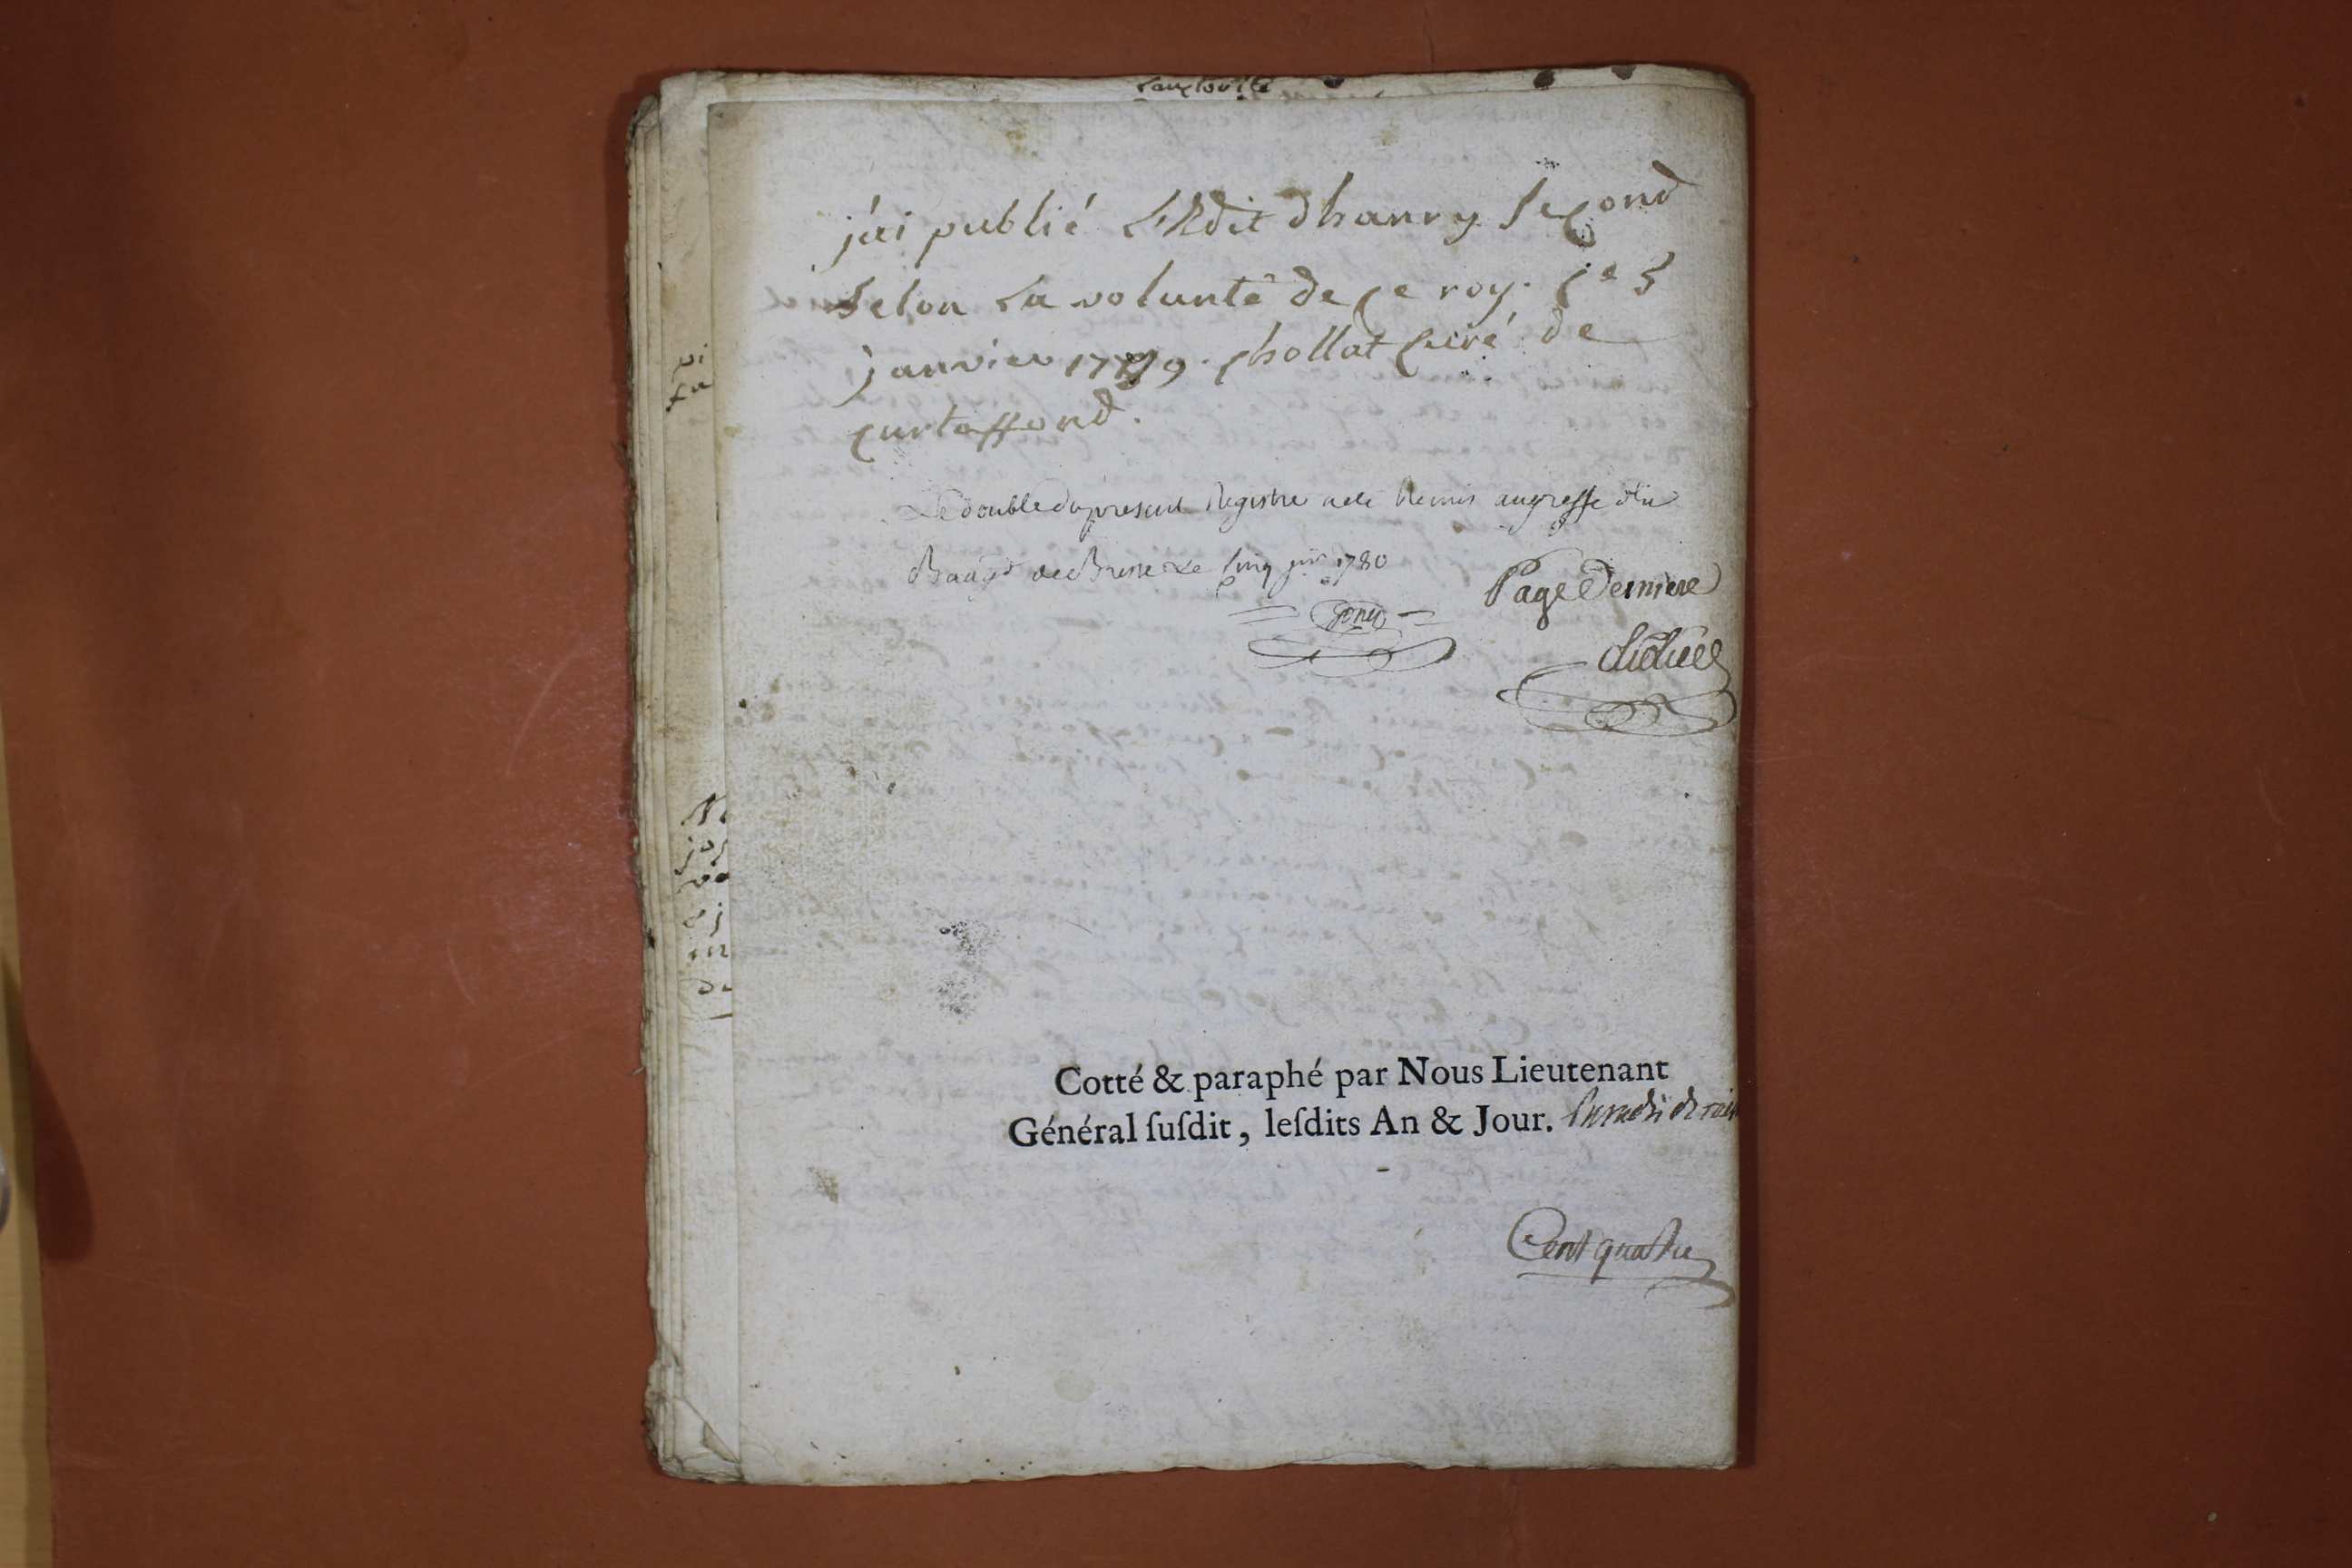 j'ai publié L'Edit dhanry second
selon la volunté de ce roy. ce 3
janvier 1779. chollat curé de
curtaffond.
Le double du present Registre a ete Remis au greffe du
Baage de Bresse Le cinq jer 1780
Page Derniere
Cotté & paraphé par Nous Lieutenant
Général ſuſdit, leſdits An & Jour.
Cent quatre